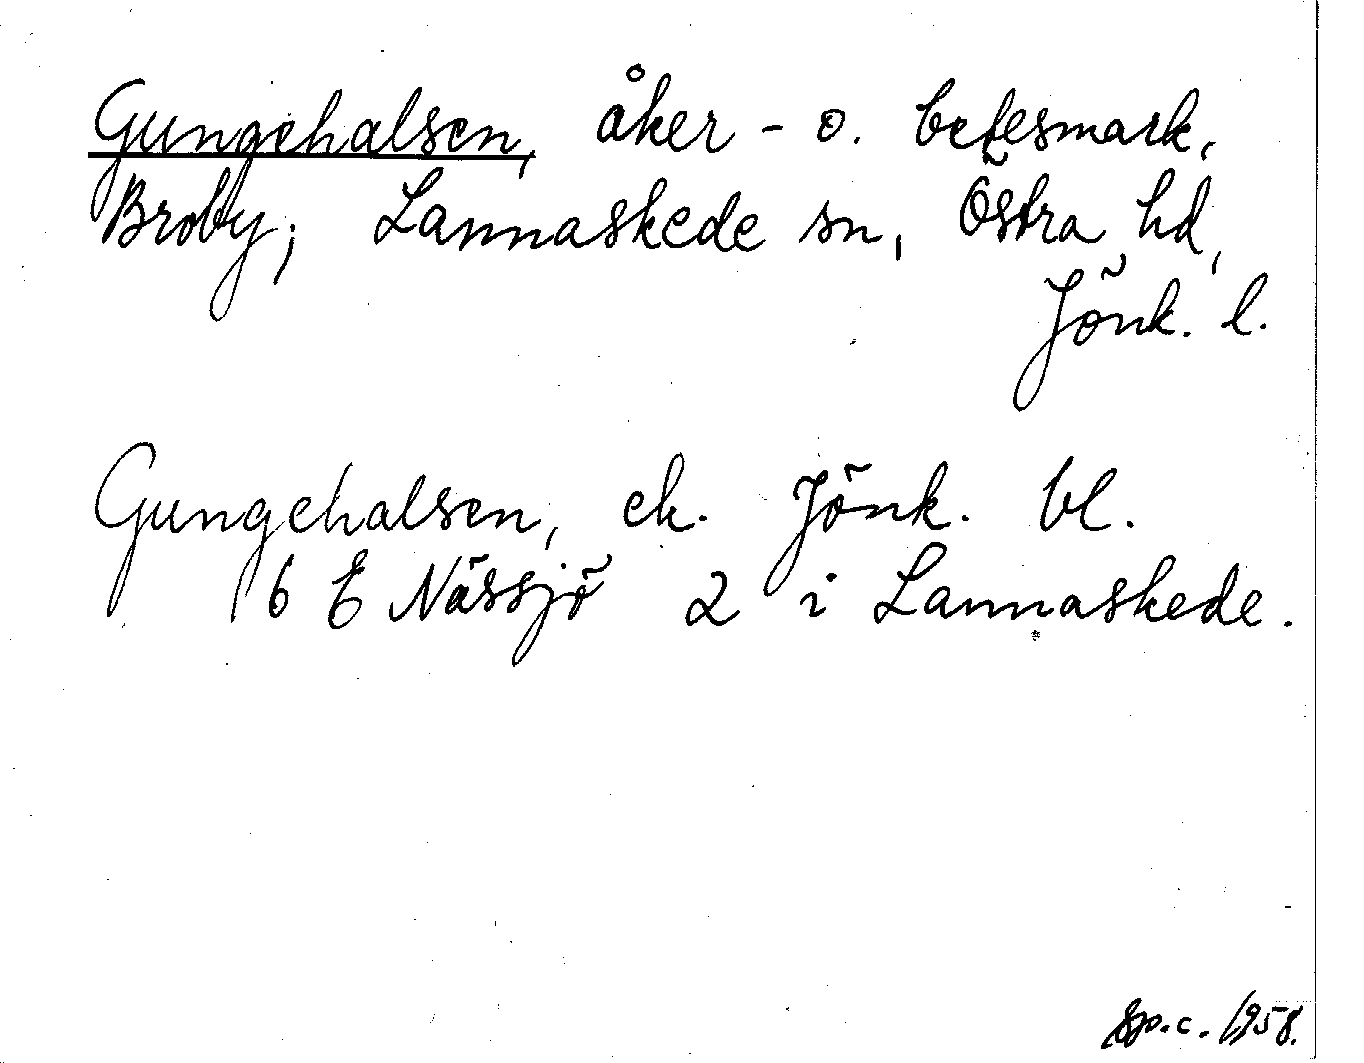 Gungehalsen, åker- o. betesmark,
Broby; Lannaskede sn, Östra hd,
Jönk. l.
Gungehalsen, ek. Jönk. bl.
6 E Nässjö 2 i Lannaskede.
Sp.c. 1958.